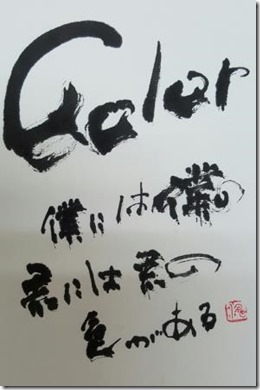 Color
僕には僕の
君には君の
色がある